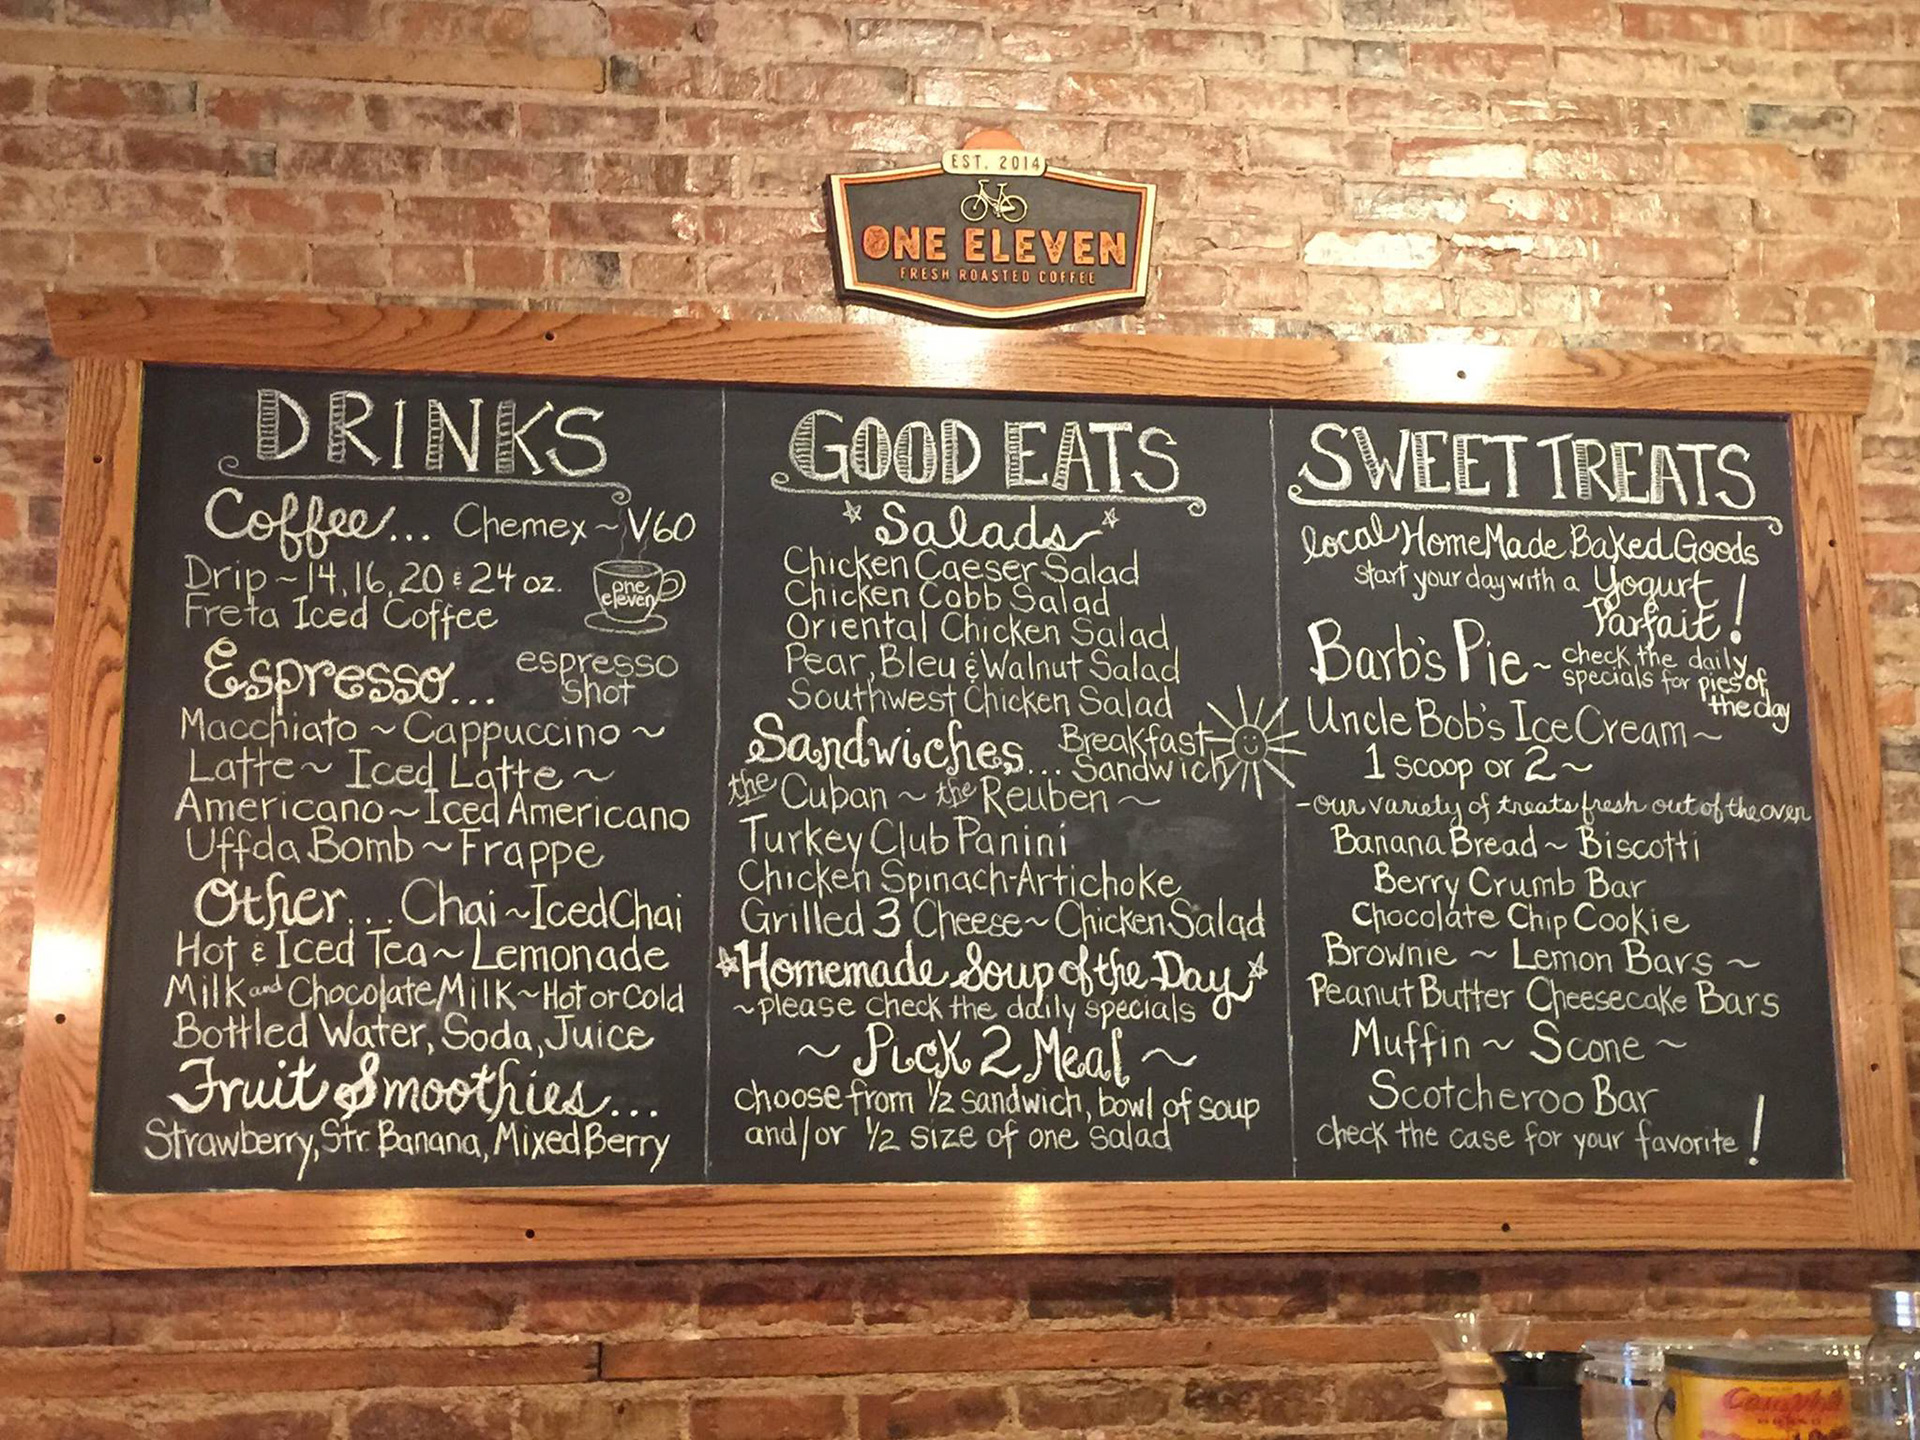 EST. 2014
ONE ELEVEN
FRESH ROASTED COFFEE
DRINKS
Coffee... Chemex ~ V60
Drip ~ 14, 16, 20 & 24 oz.
Freta Iced Coffee
one
eleven
Espresso... espresso
shot
Macchiato ~ Cappuccino ~
Latte ~ Iced Latte ~
Americano ~ Iced Americano
Uffda Bomb ~ Frappe
Other... Chai ~ Iced Chai
Hot & Iced Tea ~ Lemonade
Milk and Chocolate Milk ~ Hot or Cold
Bottled Water, Soda, Juice
Fruit Smoothies...
Strawberry, Str. Banana, Mixed Berry
GOOD EATS
Salads
Chicken Caeser Salad
Chicken Cobb Salad
Oriental Chicken Salad
Pear, Bleu & Walnut Salad
Southwest Chicken Salad
Sandwiches... Breakfast
Sandwich
the Cuban ~ the Reuben ~
Turkey Club Panini
Chicken Spinach-Artichoke
Grilled 3 Cheese ~ Chicken Salad
Homemade Soup of the Day
~ please check the daily specials
~ Pick 2 Meal ~
choose from 1/2 sandwich, bowl of soup
and/or 1/2 size of one salad
SWEET TREATS
local HomeMade Baked Goods
start your day with a Yogurt
Parfait!
Barb's Pie ~ check the daily
specials for pies of
the day
Uncle Bob's Ice Cream ~
1 scoop or 2 ~
-our variety of treats fresh out of the oven
Banana Bread ~ Biscotti
Berry Crumb Bar
Chocolate Chip Cookie
Brownie ~ Lemon Bars ~
Peanut Butter Cheesecake Bars
Muffin ~ Scone ~
Scotcheroo Bar
check the case for your favorite!